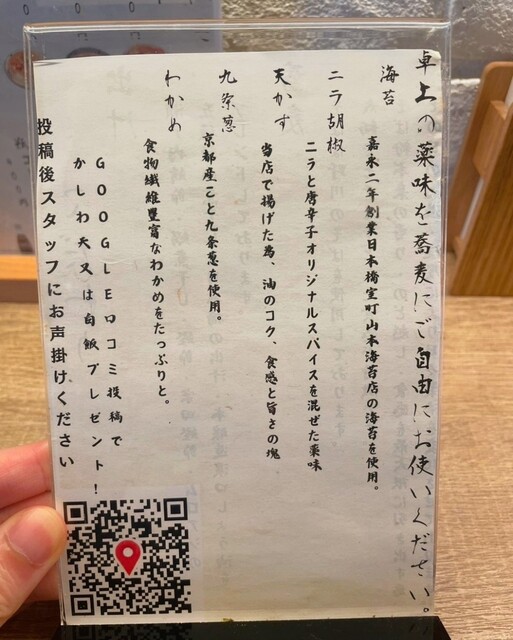 卓上の薬味を蕎麦にご自由にお使いください。
海苔
嘉永二年創業日本橋室町山本海苔店の海苔を使用。
ニラ胡椒
ニラと唐辛子オリジナルスパイスを混ぜた薬味
天かす
当店で揚げた為、油のコク、食感と旨さの塊
九条葱
京都産こと九条葱を使用。
わかめ
食物繊維豊富なわかめをたっぷりと。
GOOGLE口コミ投稿で
かしわ天又は白飯プレゼント!
投稿後スタッフにお声掛けください